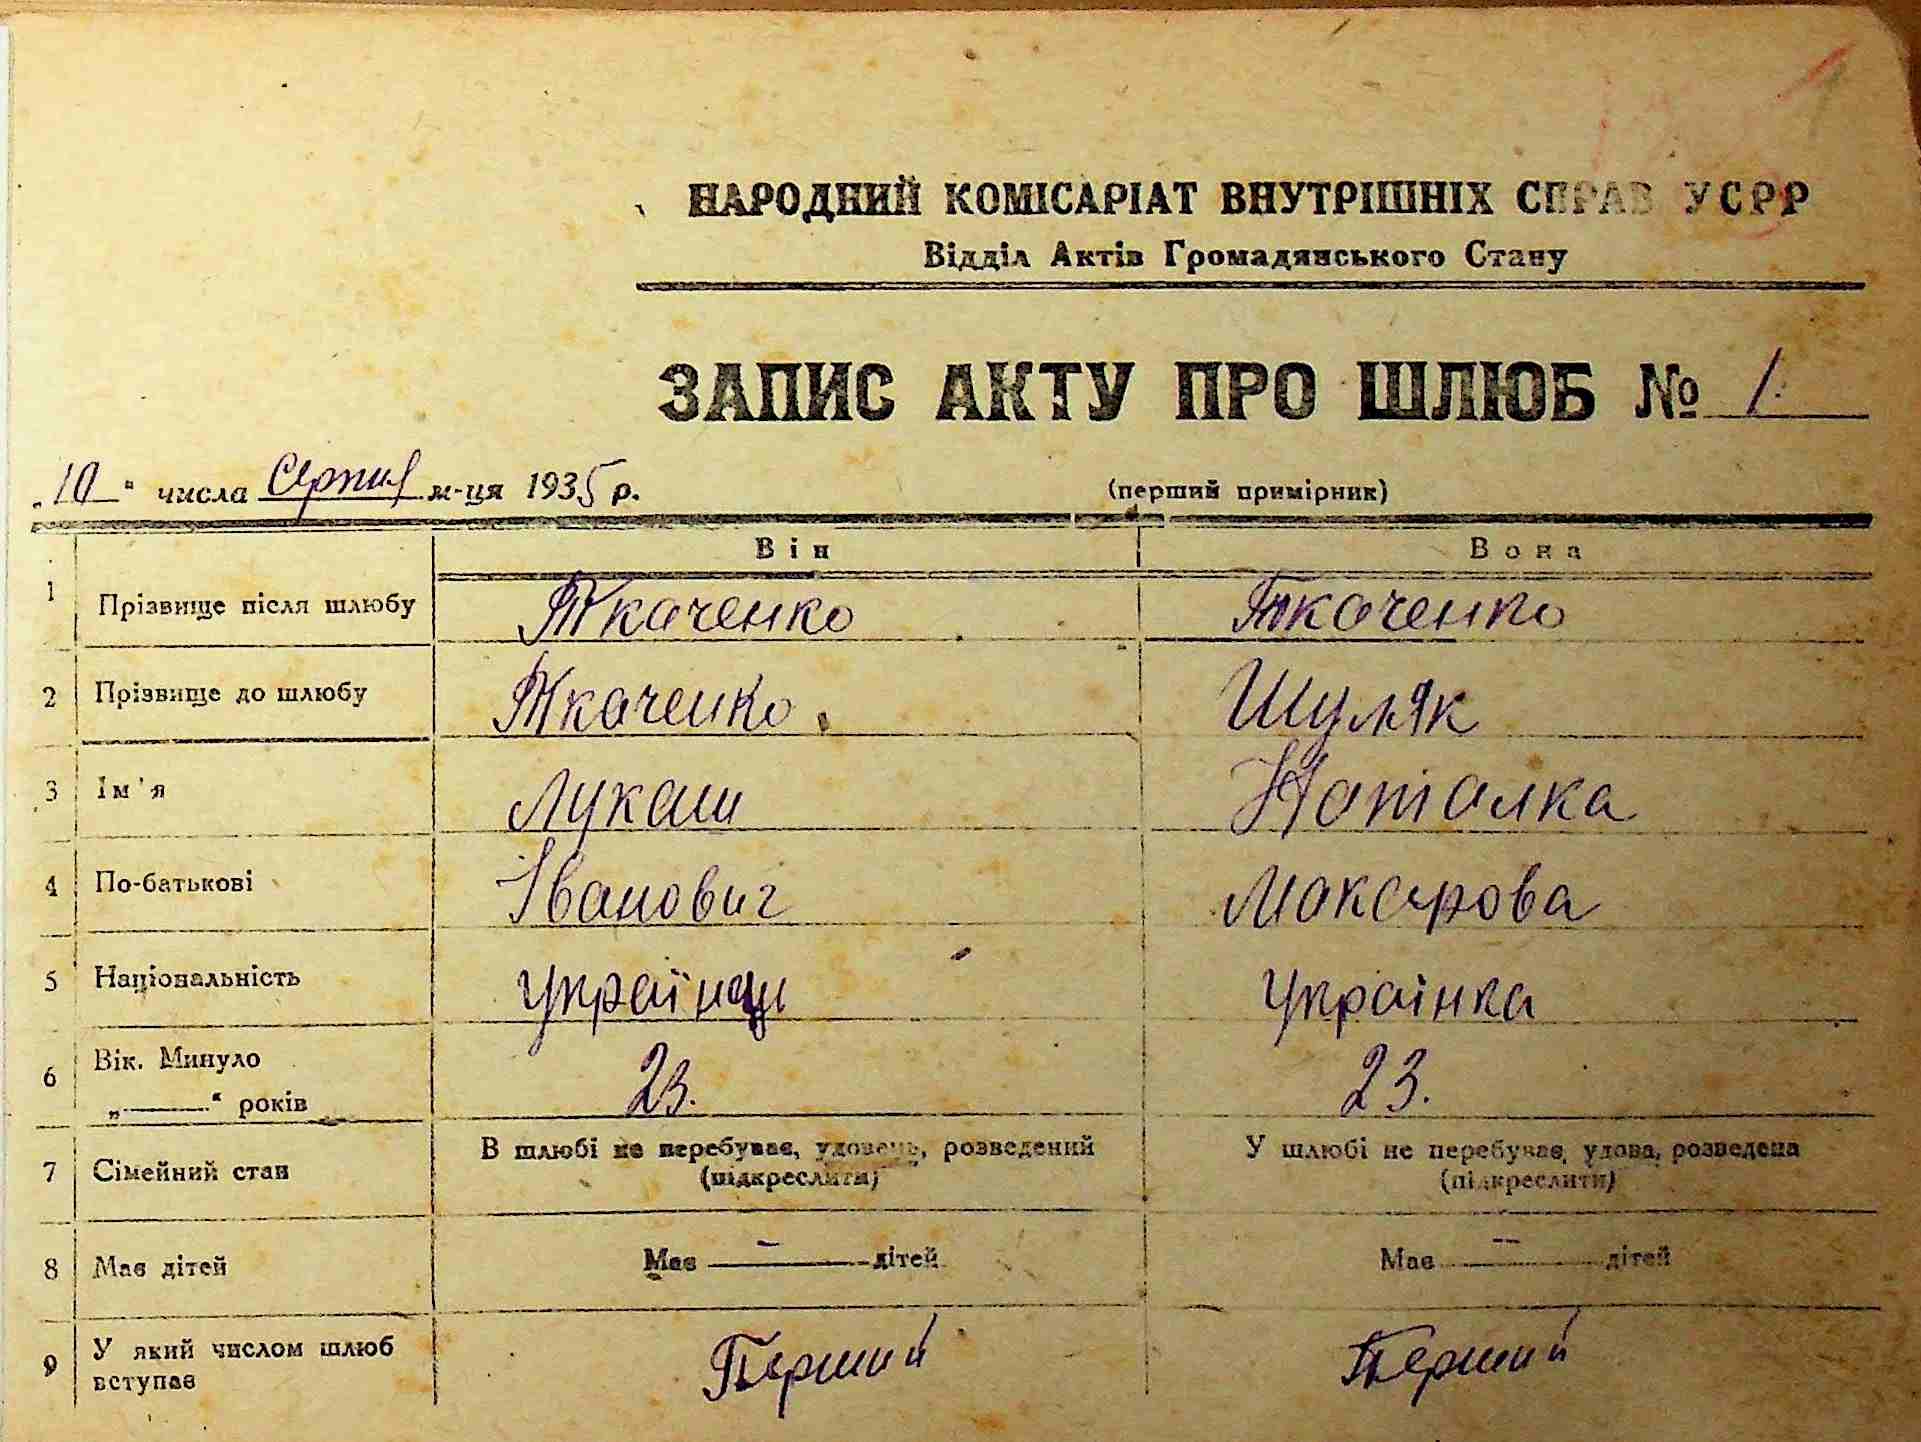 НАРОДНИЙ КОМІСАРІАТ ВНУТРІШНІХ СПРАВ УСРР
Відділ Актів Громадянського Стану
ЗАПИС АКТУ ПРО ШЛЮБ № 1.
„10" числа Серпня м-ця 1935 р. (перший примірник)
Він Вона
1 Прізвище після шлюбу Ткаченко Ткаченко
2 Прізвище до шлюбу Ткаченко Шуляк
3 Ім'я Лукаш Наталка
4 По-батькові Іванович Макарова
5 Національність Українць Українка
6 Вік. Минуло „———" років 23. 23.
7 Сімейний стан В шлюбі не перебуває, удовець, розведений (підкреслити) У шлюбі не перебуває, удова, розведена (підкреслити)
8 Має дітей Має — дітей Має — дітей
9 У який числом шлюб вступає Перший Перший